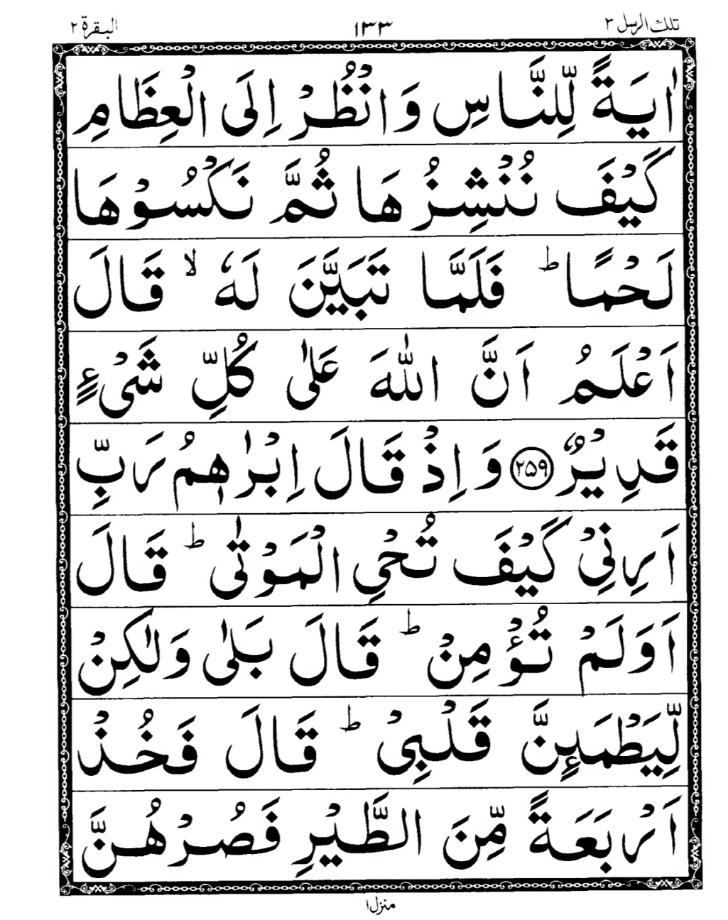 تلك الرسل ٣ ١٣٣ البقرة ٢
اٰيَةً لِّلنَّاسِ وَانْظُرْ اِلَى الْعِظَامِ
كَيْفَ نُنْشِزُهَا ثُمَّ نَكْسُوْهَا
لَحْمًا ؕ فَلَمَّا تَبَيَّنَ لَهٗ ۙ قَالَ
اَعْلَمُ اَنَّ اللّٰهَ عَلٰى كُلِّ شَىْءٍ
قَدِيْرٌ ﴿۲۵۹﴾ وَاِذْ قَالَ اِبْرٰهٖمُ رَبِّ
اَرِنِىْ كَيْفَ تُحْىِ الْمَوْتٰى ؕ قَالَ
اَوَلَمْ تُؤْمِنْ ؕ قَالَ بَلٰى وَلٰكِنْ
لِّيَطْمَئِنَّ قَلْبِىْ ؕ قَالَ فَخُذْ
اَرْبَعَةً مِّنَ الطَّيْرِ فَصُرْهُنَّ
منزل١